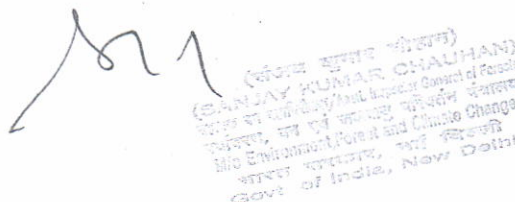 (संजय कुमार चौहान)
(SANJAY KUMAR CHAUHAN)
Asst. Inspector General of Forests
पर्यावरण, वन एवं जलवायु परिवर्तन मंत्रालय
M/o Environment, Forest and Climate Change
भारत सरकार, नई दिल्ली
Govt of India, New Delhi